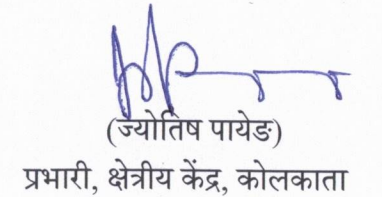 (ज्योतिष पायेङ)
प्रभारी, क्षेत्रीय केंद्र, कोलकाता